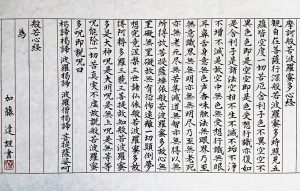 摩訶般若波羅蜜多心経
観自在菩薩行深般若波羅蜜多時照見五
蘊皆空度一切苦厄舎利子色不異空空不
異色色即是空空即是色受想行識亦復如
是舎利子是諸法空相不生不滅不垢不浄
不増不減是故空中無色無受想行識無眼
耳鼻舌身意無色声香味触法無眼界乃至
無意識界無無明亦無無明尽乃至無老死
亦無老死尽無苦集滅道無智亦無得以無
所得故菩提薩埵依般若波羅蜜多故心無
罣礙無罣礙故無有恐怖遠離一切顛倒夢
想究竟涅槃三世諸仏依般若波羅蜜多故
得阿耨多羅三藐三菩提故知般若波羅蜜
多是大神呪是大明呪是無上呪是無等等
呪能除一切苦真実不虚故説般若波羅蜜
多呪即説呪曰
羯諦羯諦 波羅羯諦 波羅僧羯諦 菩提薩婆訶
般若心経
為
加藤 達 謹書